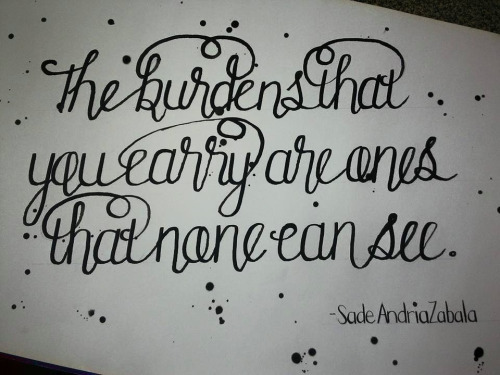 The burdens that
you carry are ones
that none can see.
-Sade Andria Zabala